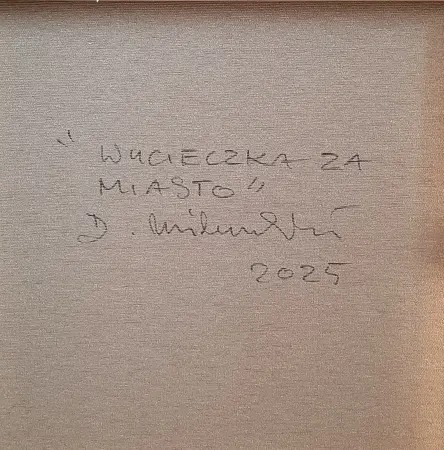 "WYCIECZKA ZA
MIASTO"
D.
2025